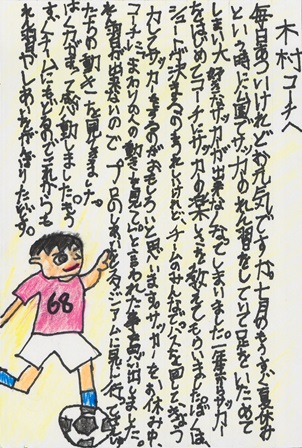 木村コーチへ
毎日あついけれどお元気ですか。七月のもうすぐ夏休み
という時に、公園でサッカーのれん習をしていて足をいためて
しまい、大好きなサッカーが出来なくなってしまいました。一年生からサッカー
をはじめてコーチにサッカーの楽しさを教えてもらいました。ぼくは、
シュートが決まるのもうれしいけれど、チームのみんなでパスを回してきょう
力してサッカーをするのがおもしろいと思います。サッカーをお休み中、
コーチにまわりの人の動きを見てと言われた事を思い出しました。
れん習が出来ないので、プロのしあいをスタジアムに見に行ってせん手
たちの動きを見てきました。
はく力があって感動しました。きょ
うチームにもどるのでこれからも
れん習やしあいをがんばりたいです。
68